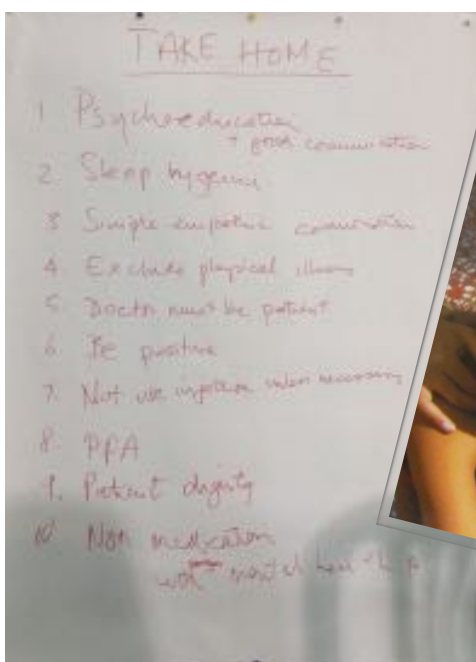 TAKE HOME
1 Psychoeducation
+ good communication
2. Sleep hygiene
3 Simple empathic communication
4. Exclude physical illness
5. Doctor must be patient
6. Be positive
7. Not use unless necessary
8. PFA
9. Patient dignity
10 Non medication